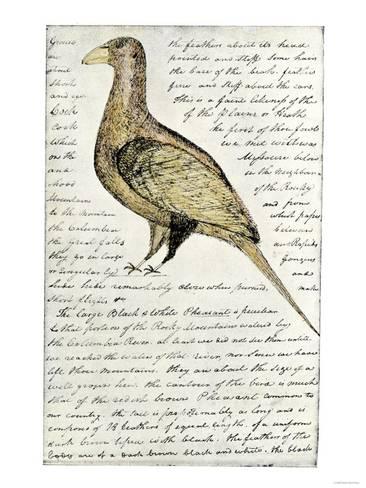 Grows the feathers about its head
are pointed and stiff some hairs
about the base of the beak. feathers
Short fine and stiff about the ears.
and This is a faint likeness of the
Cock of the Plains or Heath
Cock the first of those fowls
which we met with was
on the Missouri below
and in the neighbourhood
of the Rocky
Mountains and from
to the Mountain which
the Columbia between
the great falls and Rapids
they go in large Gouges
or singularly and
hide hide remarkably close when pursued,
short flights &c make
The large Black & White Pheasant is peculiar
to that portion of the Rocky Mountains watered by
the Columbia River. at least we did not see them untill
we reached the waters of that river, nor since we have
left those mountains. they are about the size of a
well grown hen. the contour of the bird is much
that of the redish brown Pheasant common to
our country. the tail is proportionably as long and is
composed of 18 feathers of equal length. of a uniform
dark brown tiped with black. the feathers of the
body are of a dark brown black and white. the black